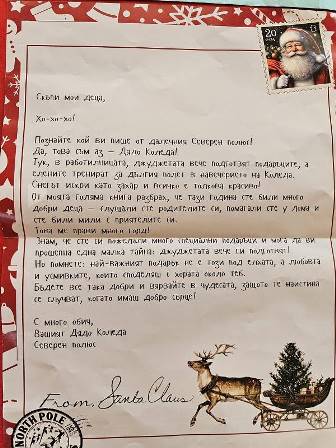 20
Скъпи мои деца,
Хо-хо-хо!
Познайте кой ви пише от далечния Северен полюс!
Да, това съм аз – Дядо Коледа!
Тук, в работилницата, джуджетата вече подготвят подаръците, а
елените тренират за дългия полет в навечерието на Коледа.
Снегът искри като захар и всичко е толкова красиво!
От моята голяма книга разбрах, че тази година сте били много
добри деца – слушали сте родителите си, помагали сте у дома и
сте били мили с приятелите си.
Това ме прави много горд!
Знам, че сте си пожелали много специални подаръци и мога да ви
прошепна една малка тайна: джуджетата вече ги подготвят!
Но помнете: най-важният подарък не е този под елхата, а любовта
и усмивките, които споделяш с хората около теб.
Бъдете все така добри и вярвайте в чудесата, защото те наистина
се случват, когато имаш добро сърце!
С много обич,
Вашият Дядо Коледа
Северен полюс
From, Santa Claus
NORTH POLE